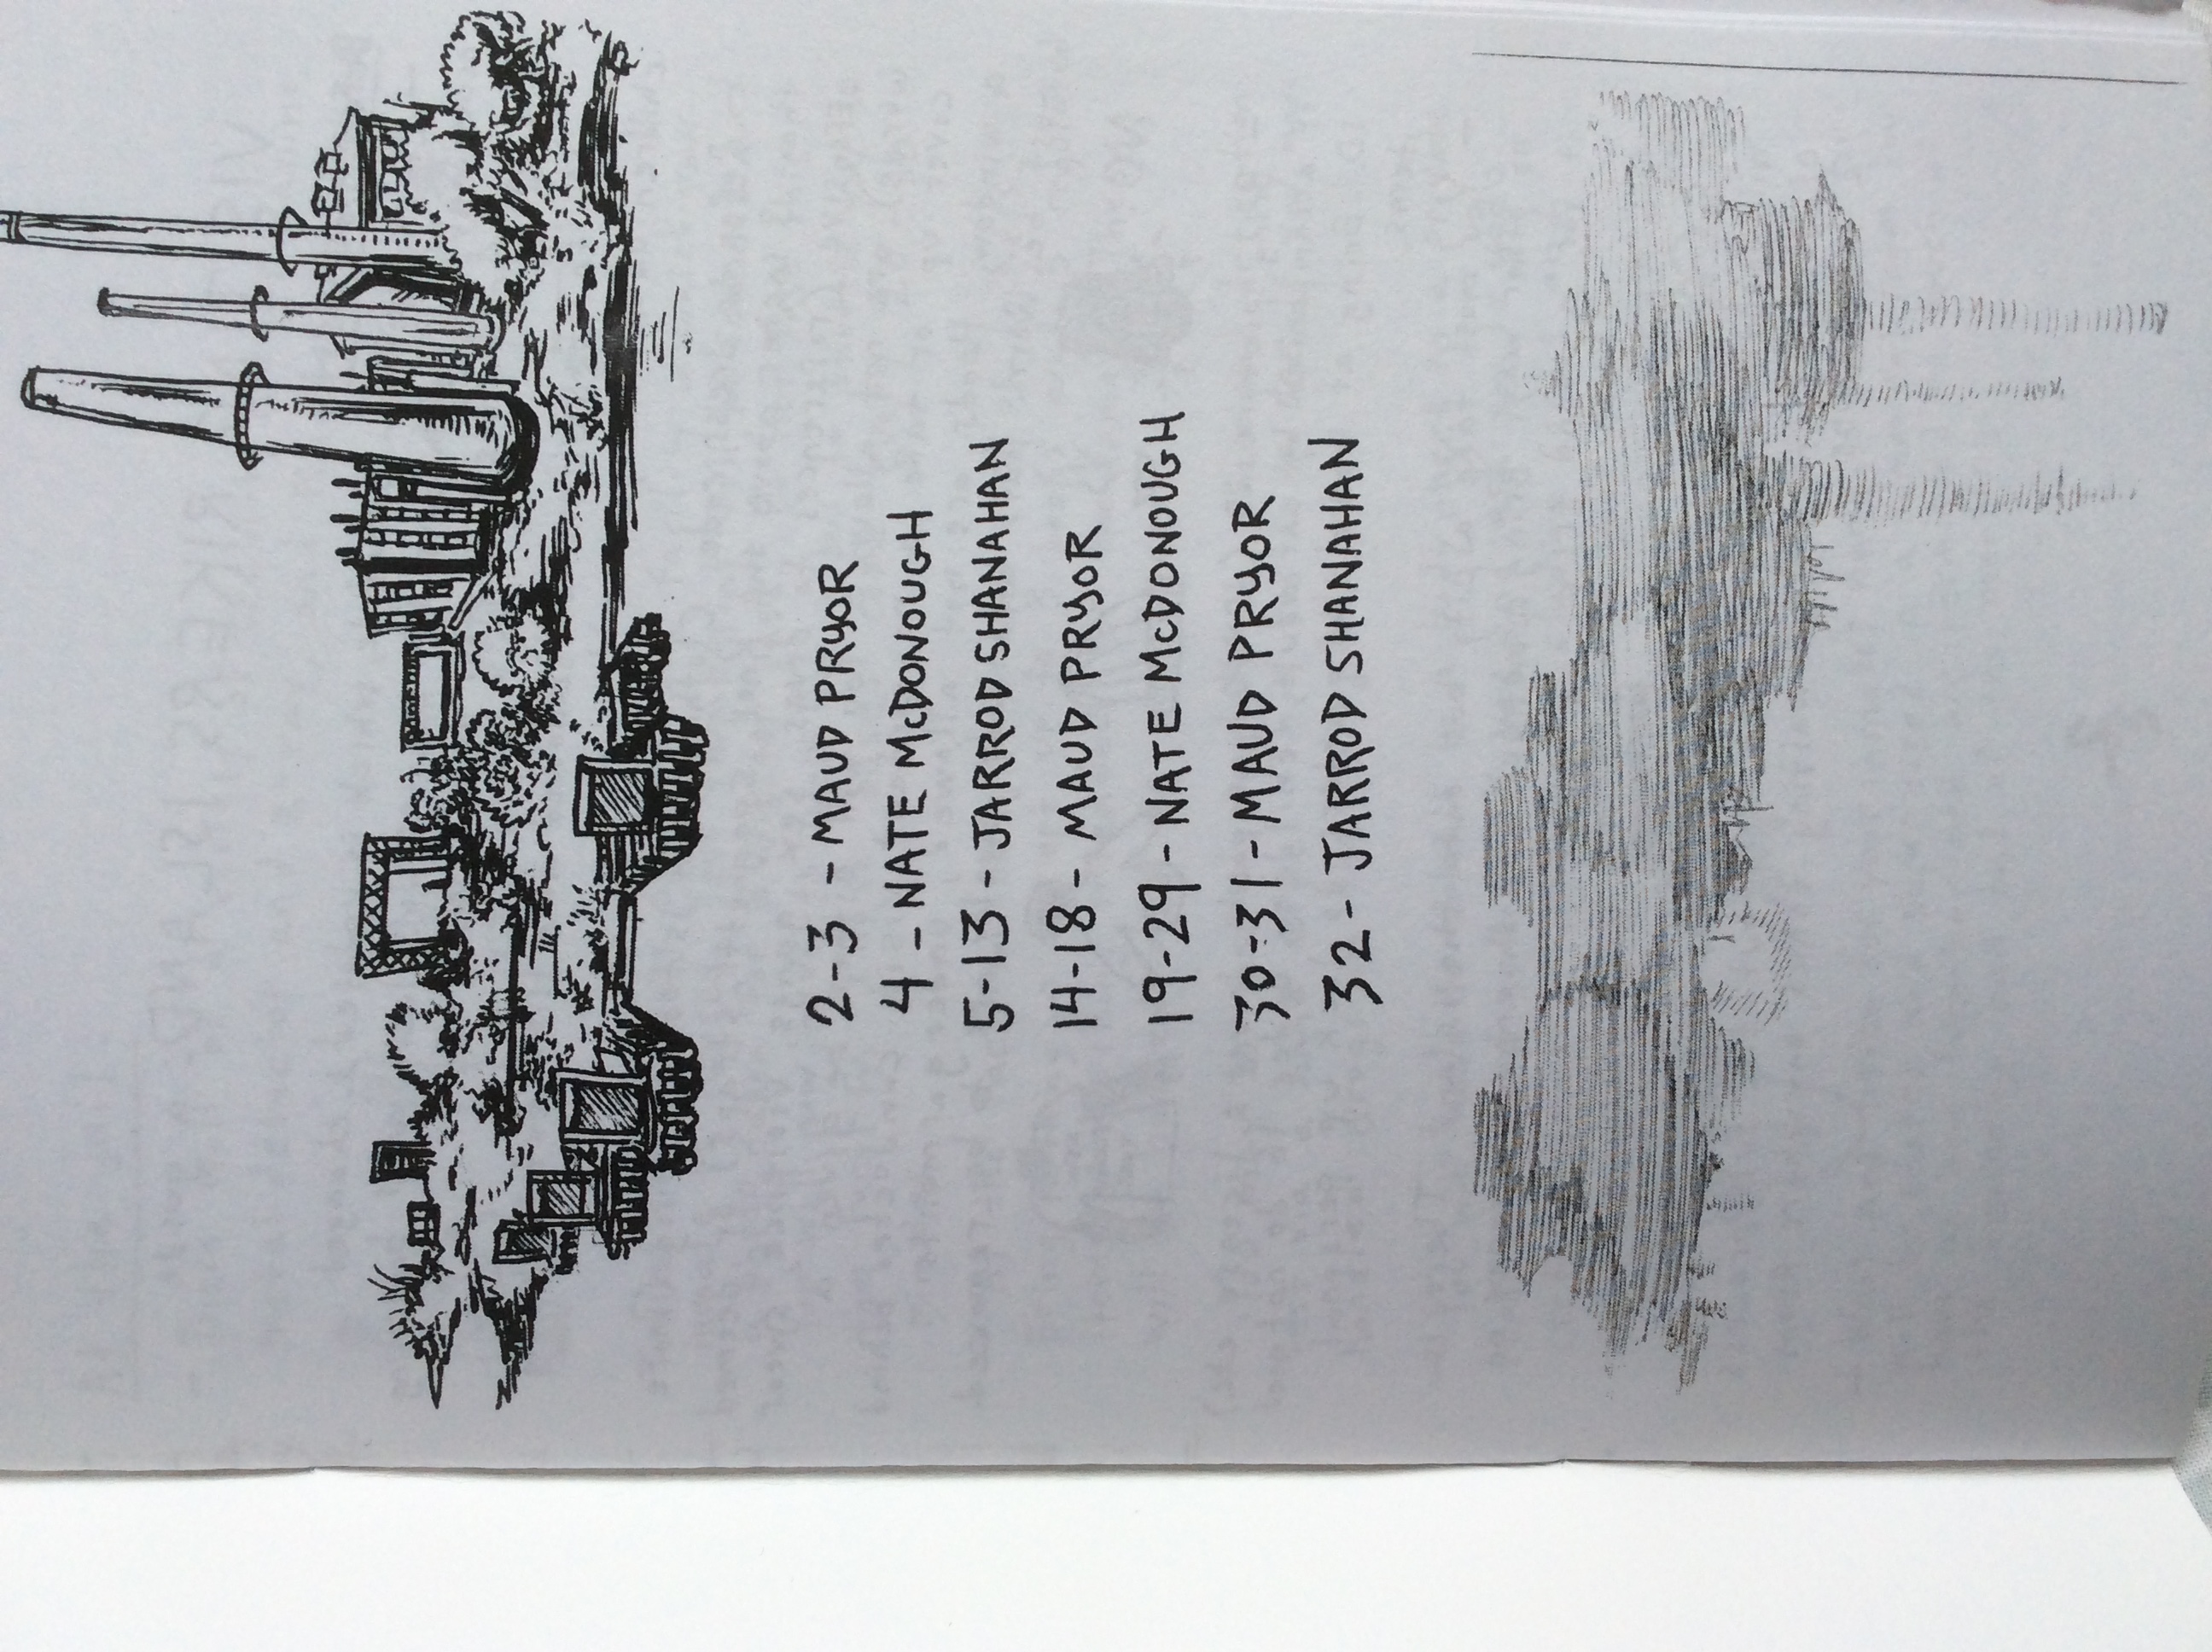 2-3 - MAUD PRYOR
4 - NATE McDONOUGH
5-13 - JARROD SHANAHAN
14-18 - MAUD PRYOR
19-29 - NATE McDONOUGH
30-31 - MAUD PRYOR
32 - JARROD SHANAHAN